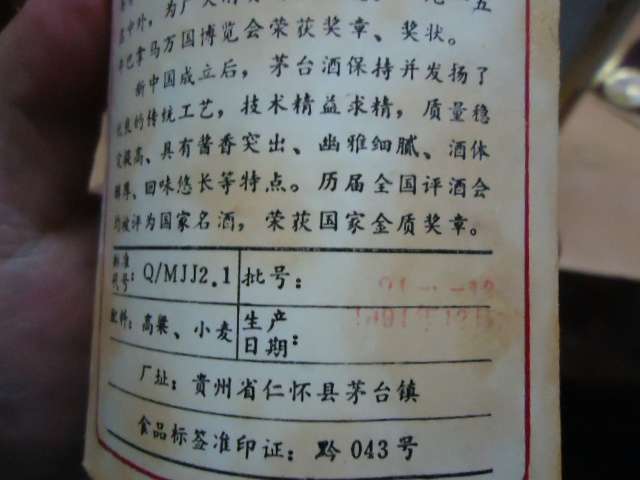 中外，为广大
巴拿马万国博览会荣获奖章、奖状。
新中国成立后，茅台酒保持并发扬了
优良的传统工艺，技术精益求精，质量稳
定提高、具有酱香突出、幽雅细腻、酒体
醇厚、回味悠长等特点。历届全国评酒会
均被评为国家名酒，荣获国家金质奖章。
标准代号：Q/MJJ2.1 批号：
配料：高粱、小麦 生产日期：
厂址：贵州省仁怀县茅台镇
食品标签准印证：黔043号